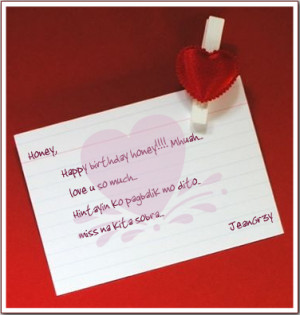 Honey,
Happy birthday honey!!!! Mhuah..
love u so much..
Hintayin ko pagbalik mo dito..
miss na kita sobra..
JeanGrey